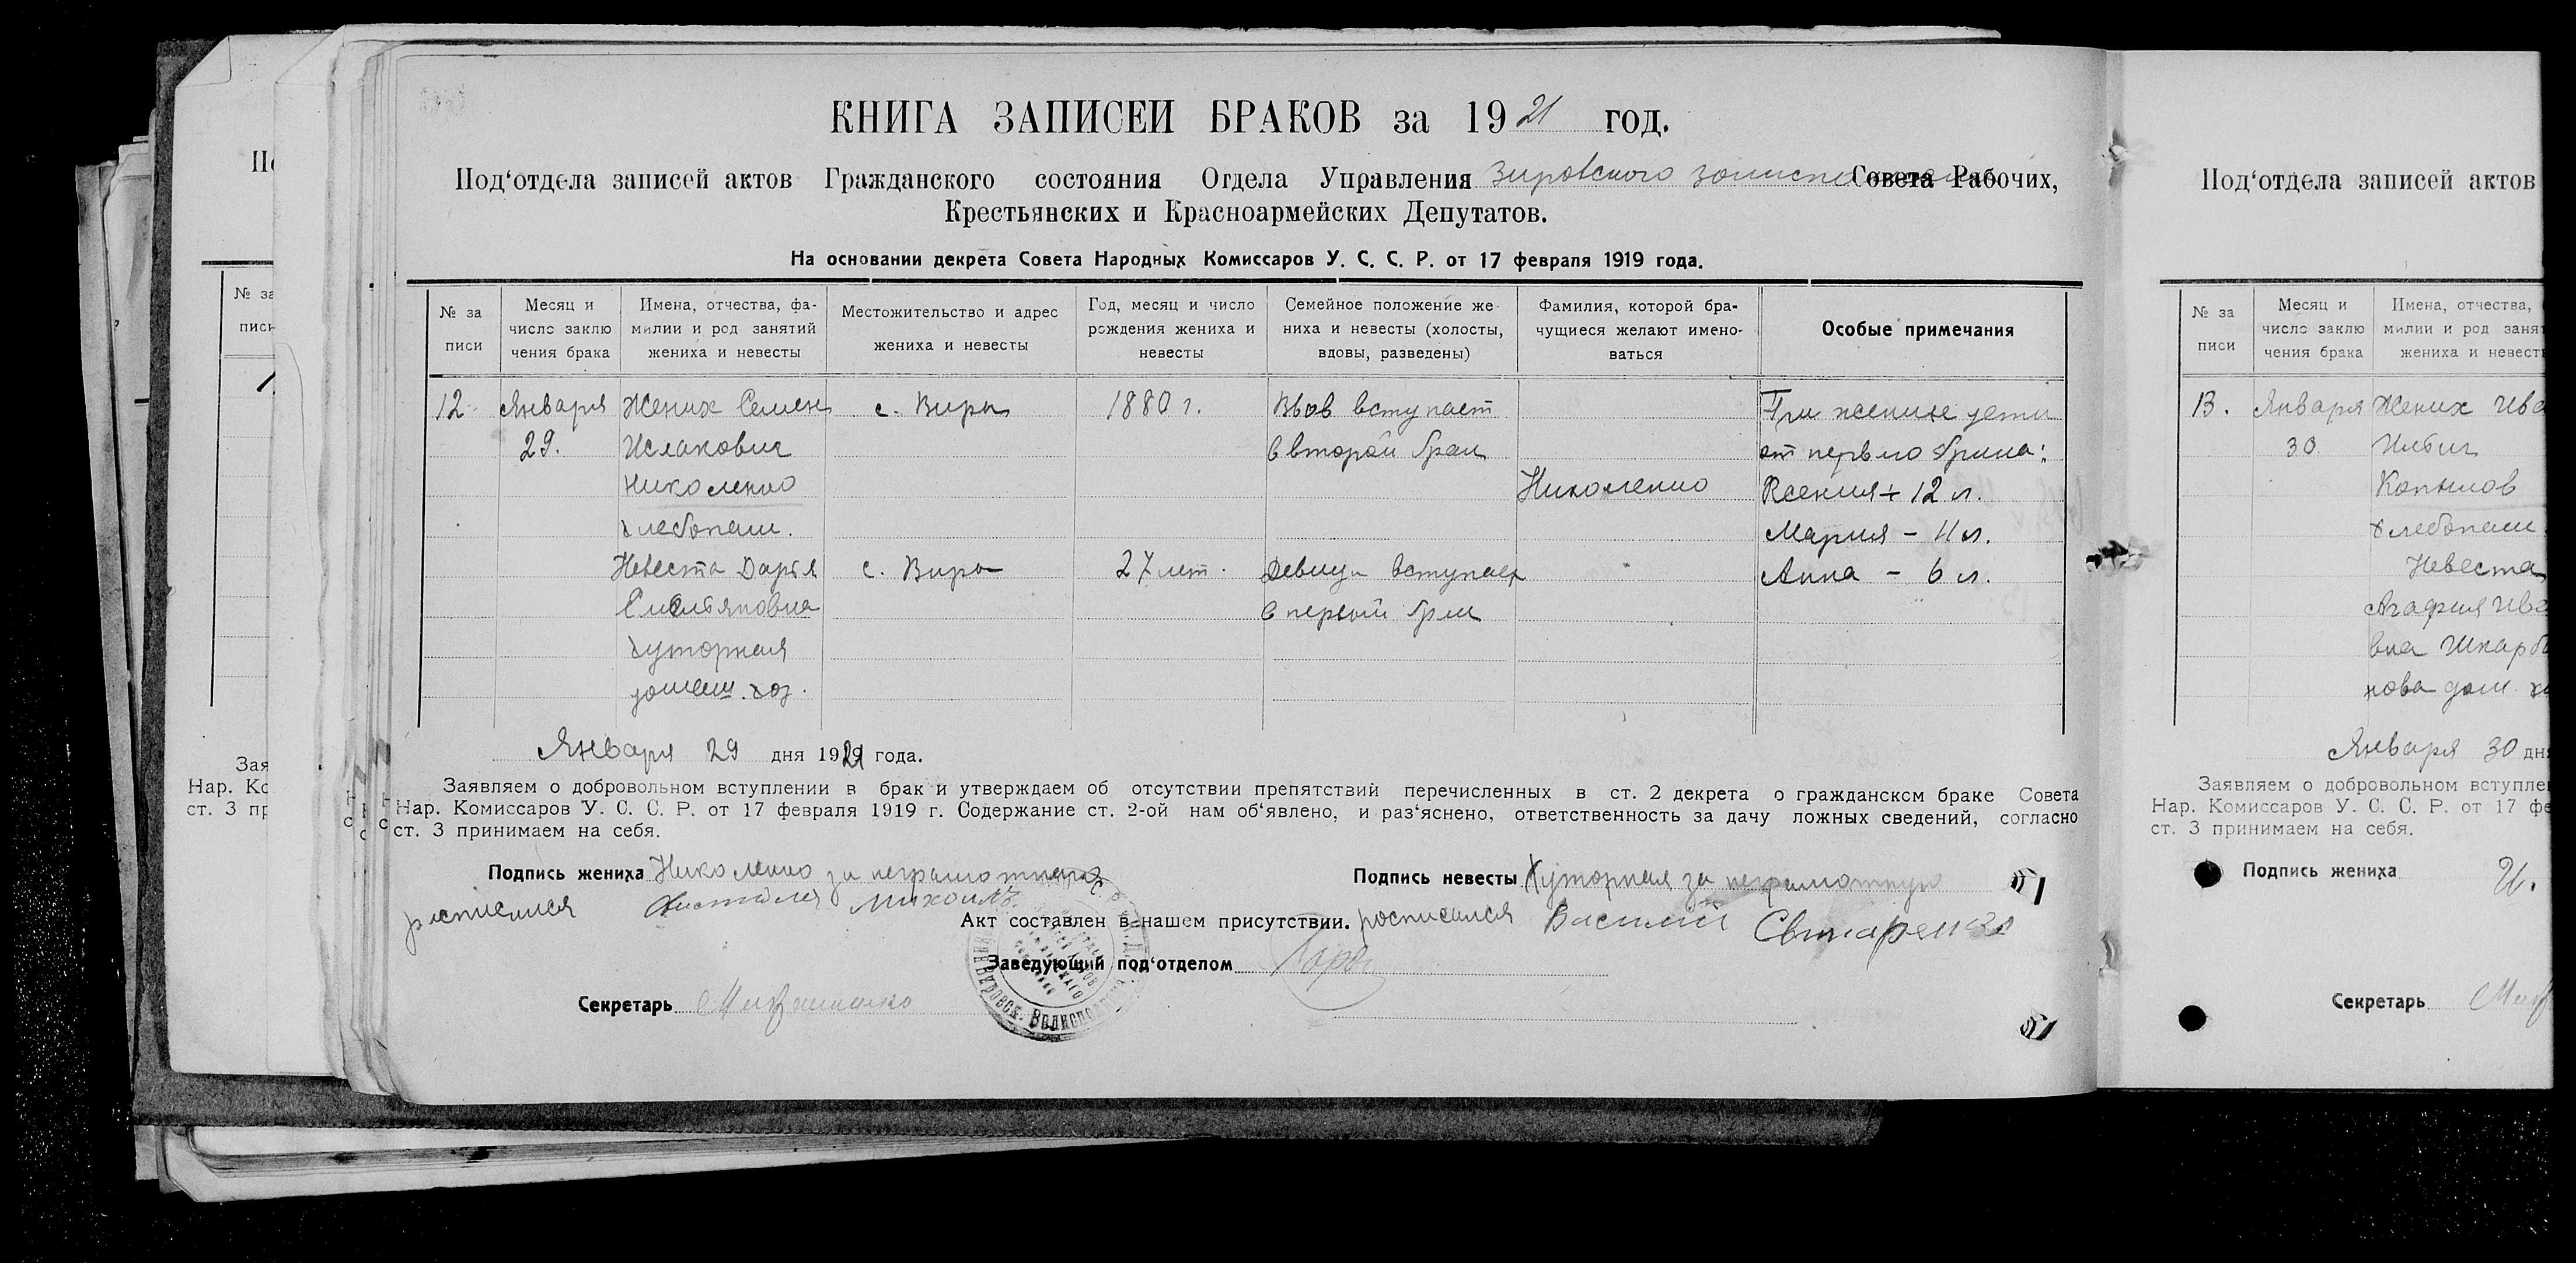 КНИГА ЗАПИСЕЙ БРАКОВ за 1921 год.
Под‘отдела записей актов Гражданского состояния Отдела Управления Совета Рабочих,
Крестьянских и Красноармейских Депутатов.
На основании декрета Совета Народных Комиссаров У. С. С. Р. от 17 февраля 1919 года.
№ за писи
Месяц и число заклю чения брака
Имена, отчества, фа- милии и род занятий жениха и невесты
Местожительство и адрес жениха и невесты
Год, месяц и число рождения жениха и невесты
Семейное положение же ниха и невесты (холосты, вдовы, разведены)
Фамилия, которой бра- чущиеся желают имено- ваться
Особые примечания
12 Января Жених Семен с. Виры 1880 г. Вдов вступает При жених дети
29. Исакович в второй брак от первого брака:
Николенко Николенко Ксения 12 л.
хлебопаш. Мария - 11 л.
Невеста Дария с. Виры 27 лет. Девица вступает Анна - 6 л.
Емельяновна в первый брак
Хуторная
домаш. хоз.
Января 29 дня 1921 года.
Заявляем о добровольном вступлении в брак и утверждаем об отсутствии препятствий перечисленных в ст. 2 декрета о гражданском браке Совета
Нар. Комиссаров У. С. С. Р. от 17 февраля 1919 г. Содержание ст. 2-ой нам об‘явлено, и раз‘яснено, ответственность за дачу ложных сведений, согласно
ст. 3 принимаем на себя.
Подпись жениха Николенко за неграмотного Подпись невесты Хуторная за неграмотную
росписался Михаилъ
Акт составлен в нашем присутствии. росписался Василий
Заведующий под‘отделом
Секретарь
Под‘отдела записей актов
№ за писи
Месяц и число заклю чения брака
Имена, отчества, милии и род заня жениха и невест
13. Января Жених Ива
30 Ильич
Копылов
хлебопаш
Невеста
Агафия Ива
вна Шкарб
нова дом. хо
Января 30 дн
Заявляем о добровольном вступле
Нар. Комиссаров У. С. С. Р. от 17 фе
ст. 3 принимаем на себя.
Подпись жениха И.
Секретарь
№ за
писи
Зая
Нар. Ко
ст. 3 пр